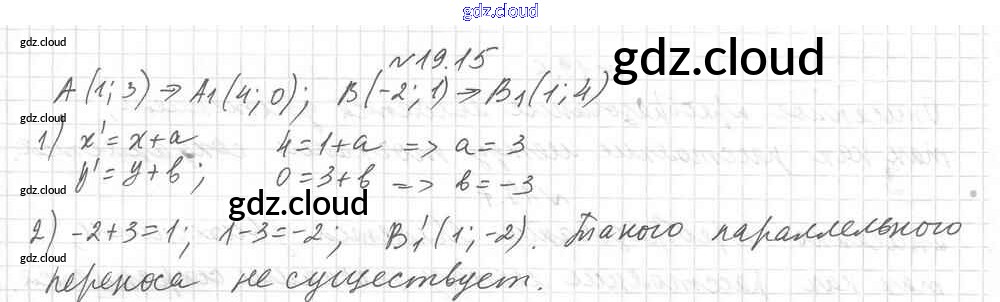 gdz.cloud
gdz.cloud
№19.15
gdz.cloud
gdz.cloud
A(1; 3) → A₁(4; 0); B(-2; 1) → B₁(1; 4)
gdz.cloud
1) x' = x + a 4 = 1 + a => a = 3
y' = y + b; 0 = 3 + b => b = -3
gdz.cloud
gdz.cloud
2) -2 + 3 = 1; 1 - 3 = -2, B₁'(1; -2). Такого параллельного
gdz.cloud
переноса не существует.